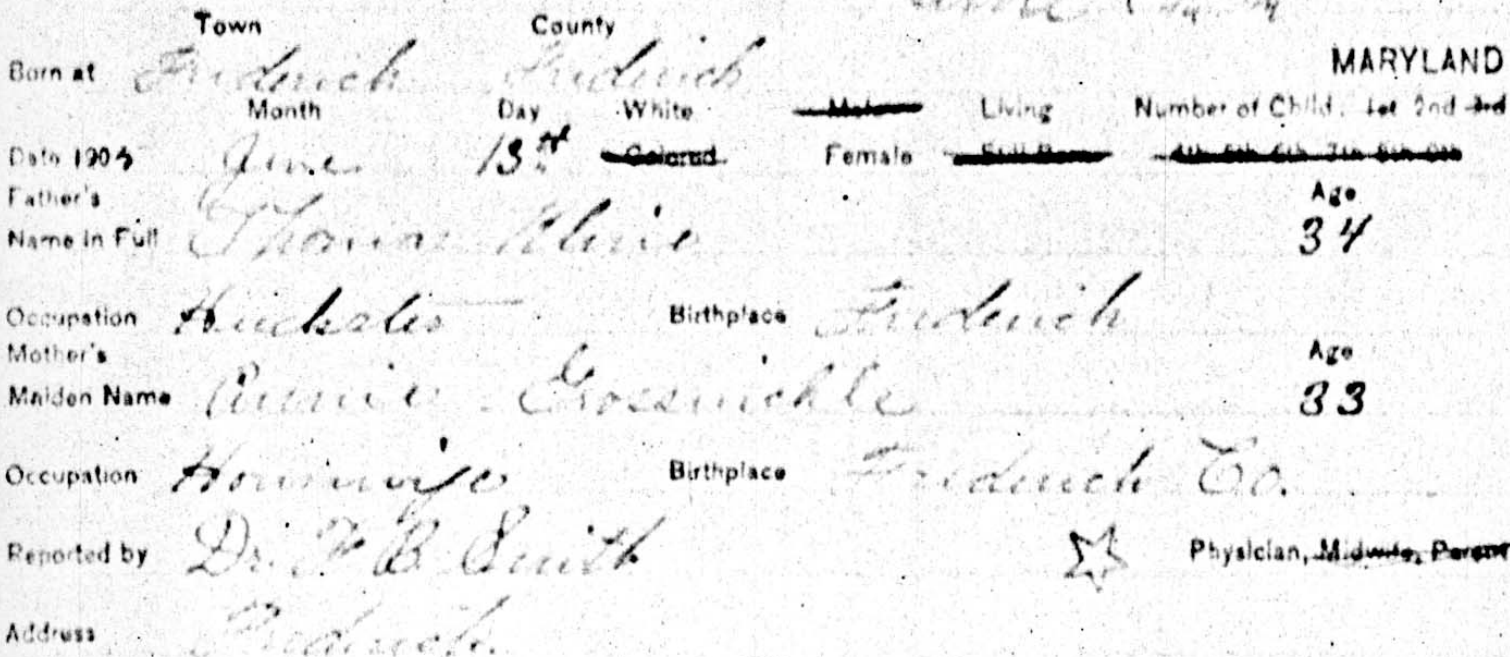 Town County
Born at Frederick Frederick MARYLAND
Month Day White Male Living Number of Child. 1st 2nd 3rd
Date 1905 June 13th Colored Female Still Born 4th 5th 6th 7th 8th 9th
Father's Age
Name in Full Thomas Kline 34
Occupation Huckster Birthplace Frederick
Mother's Age
Maiden Name Annie Grossnickle 33
Occupation Housewife Birthplace Frederick Co.
Reported by Dr. F B Smith Physician, Midwife, Parent
Address Frederick